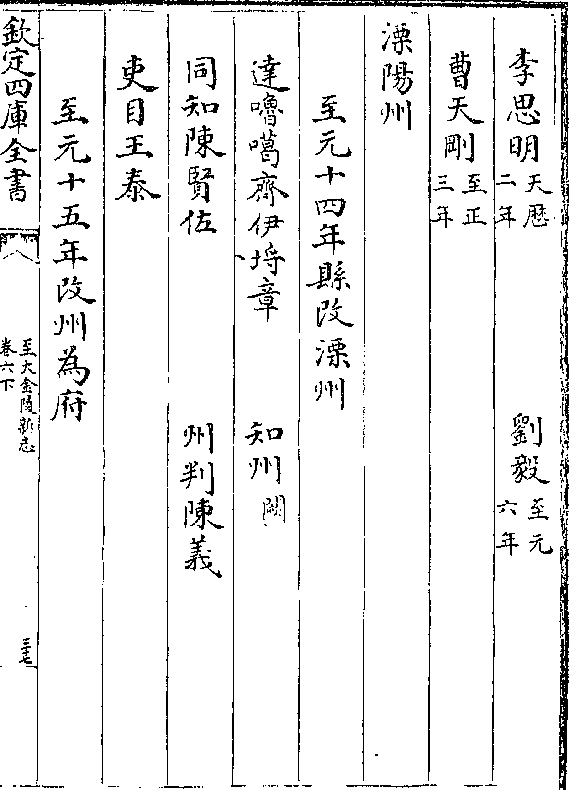 李思明天厯二年　劉毅至元六年
曹天剛至正三年
溧陽州
至元十四年縣改溧州
達嚕噶齊伊埒章　知州闕
同知陳賢佐　州判陳義
吏目王泰
至元十五年改州為府
欽定四庫全書　至大金陵新志卷六下　三七